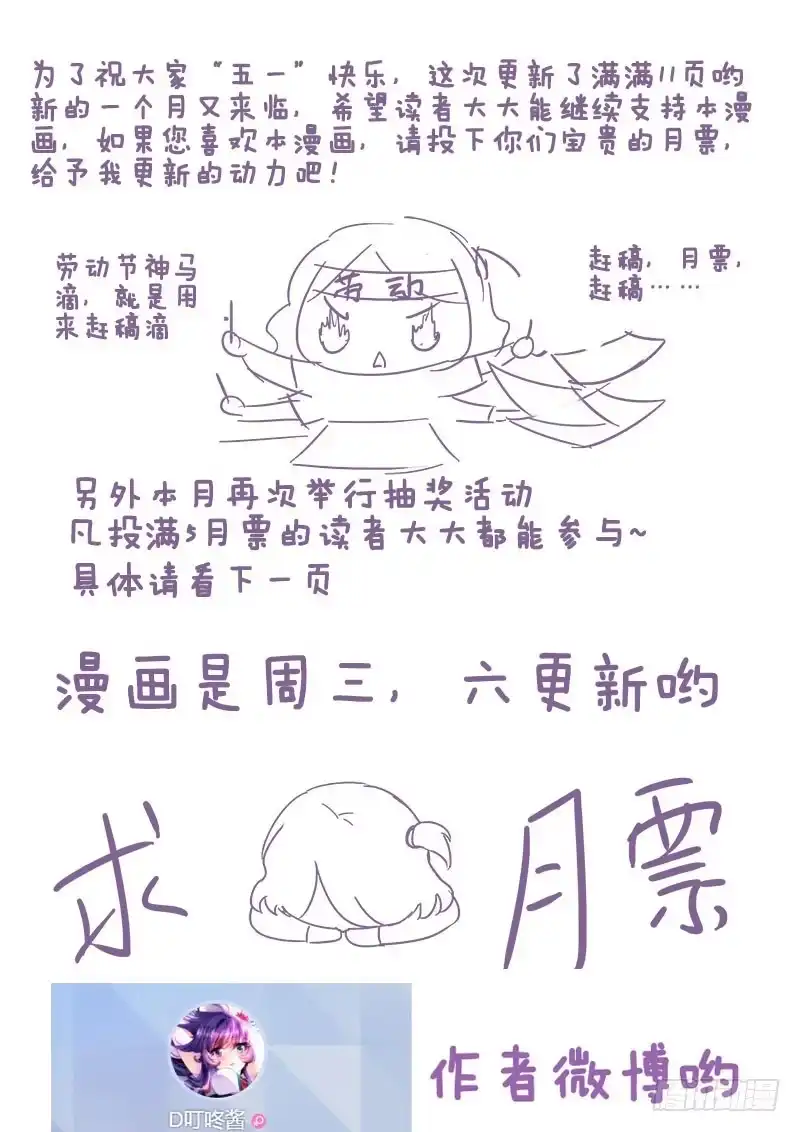 为了祝大家“五一”快乐，这次更新了满满11页哟
新的一个月又来临，希望读者大大能继续支持本漫
画，如果您喜欢本漫画，请投下你们宝贵的月票，
给予我更新的动力吧！
劳动节神马
滴，就是用
来赶稿滴
劳动
赶稿，月票，
赶稿……
另外本月再次举行抽奖活动
凡投满5月票的读者大大都能参与~
具体请看下一页
漫画是周三，六更新哟
求月票
D叮咚酱
作者微博哟